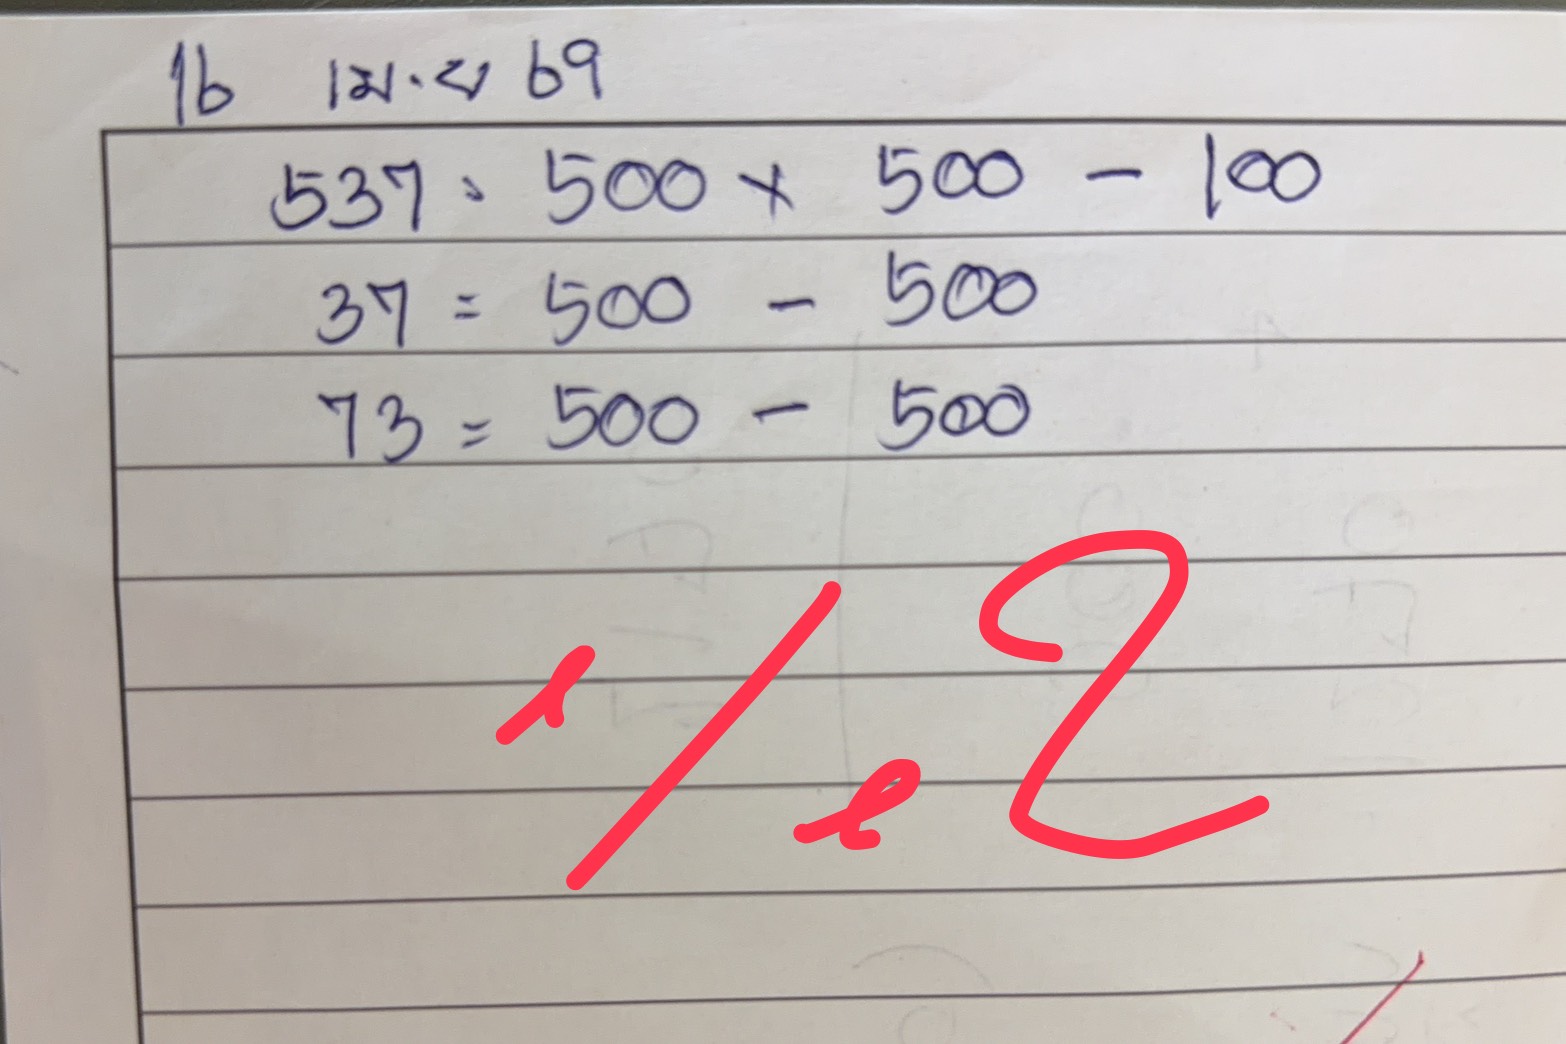 16 เม.ย 69
537 = 500 x 500 - 100
37 = 500 - 500
73 = 500 - 500
1/2 2